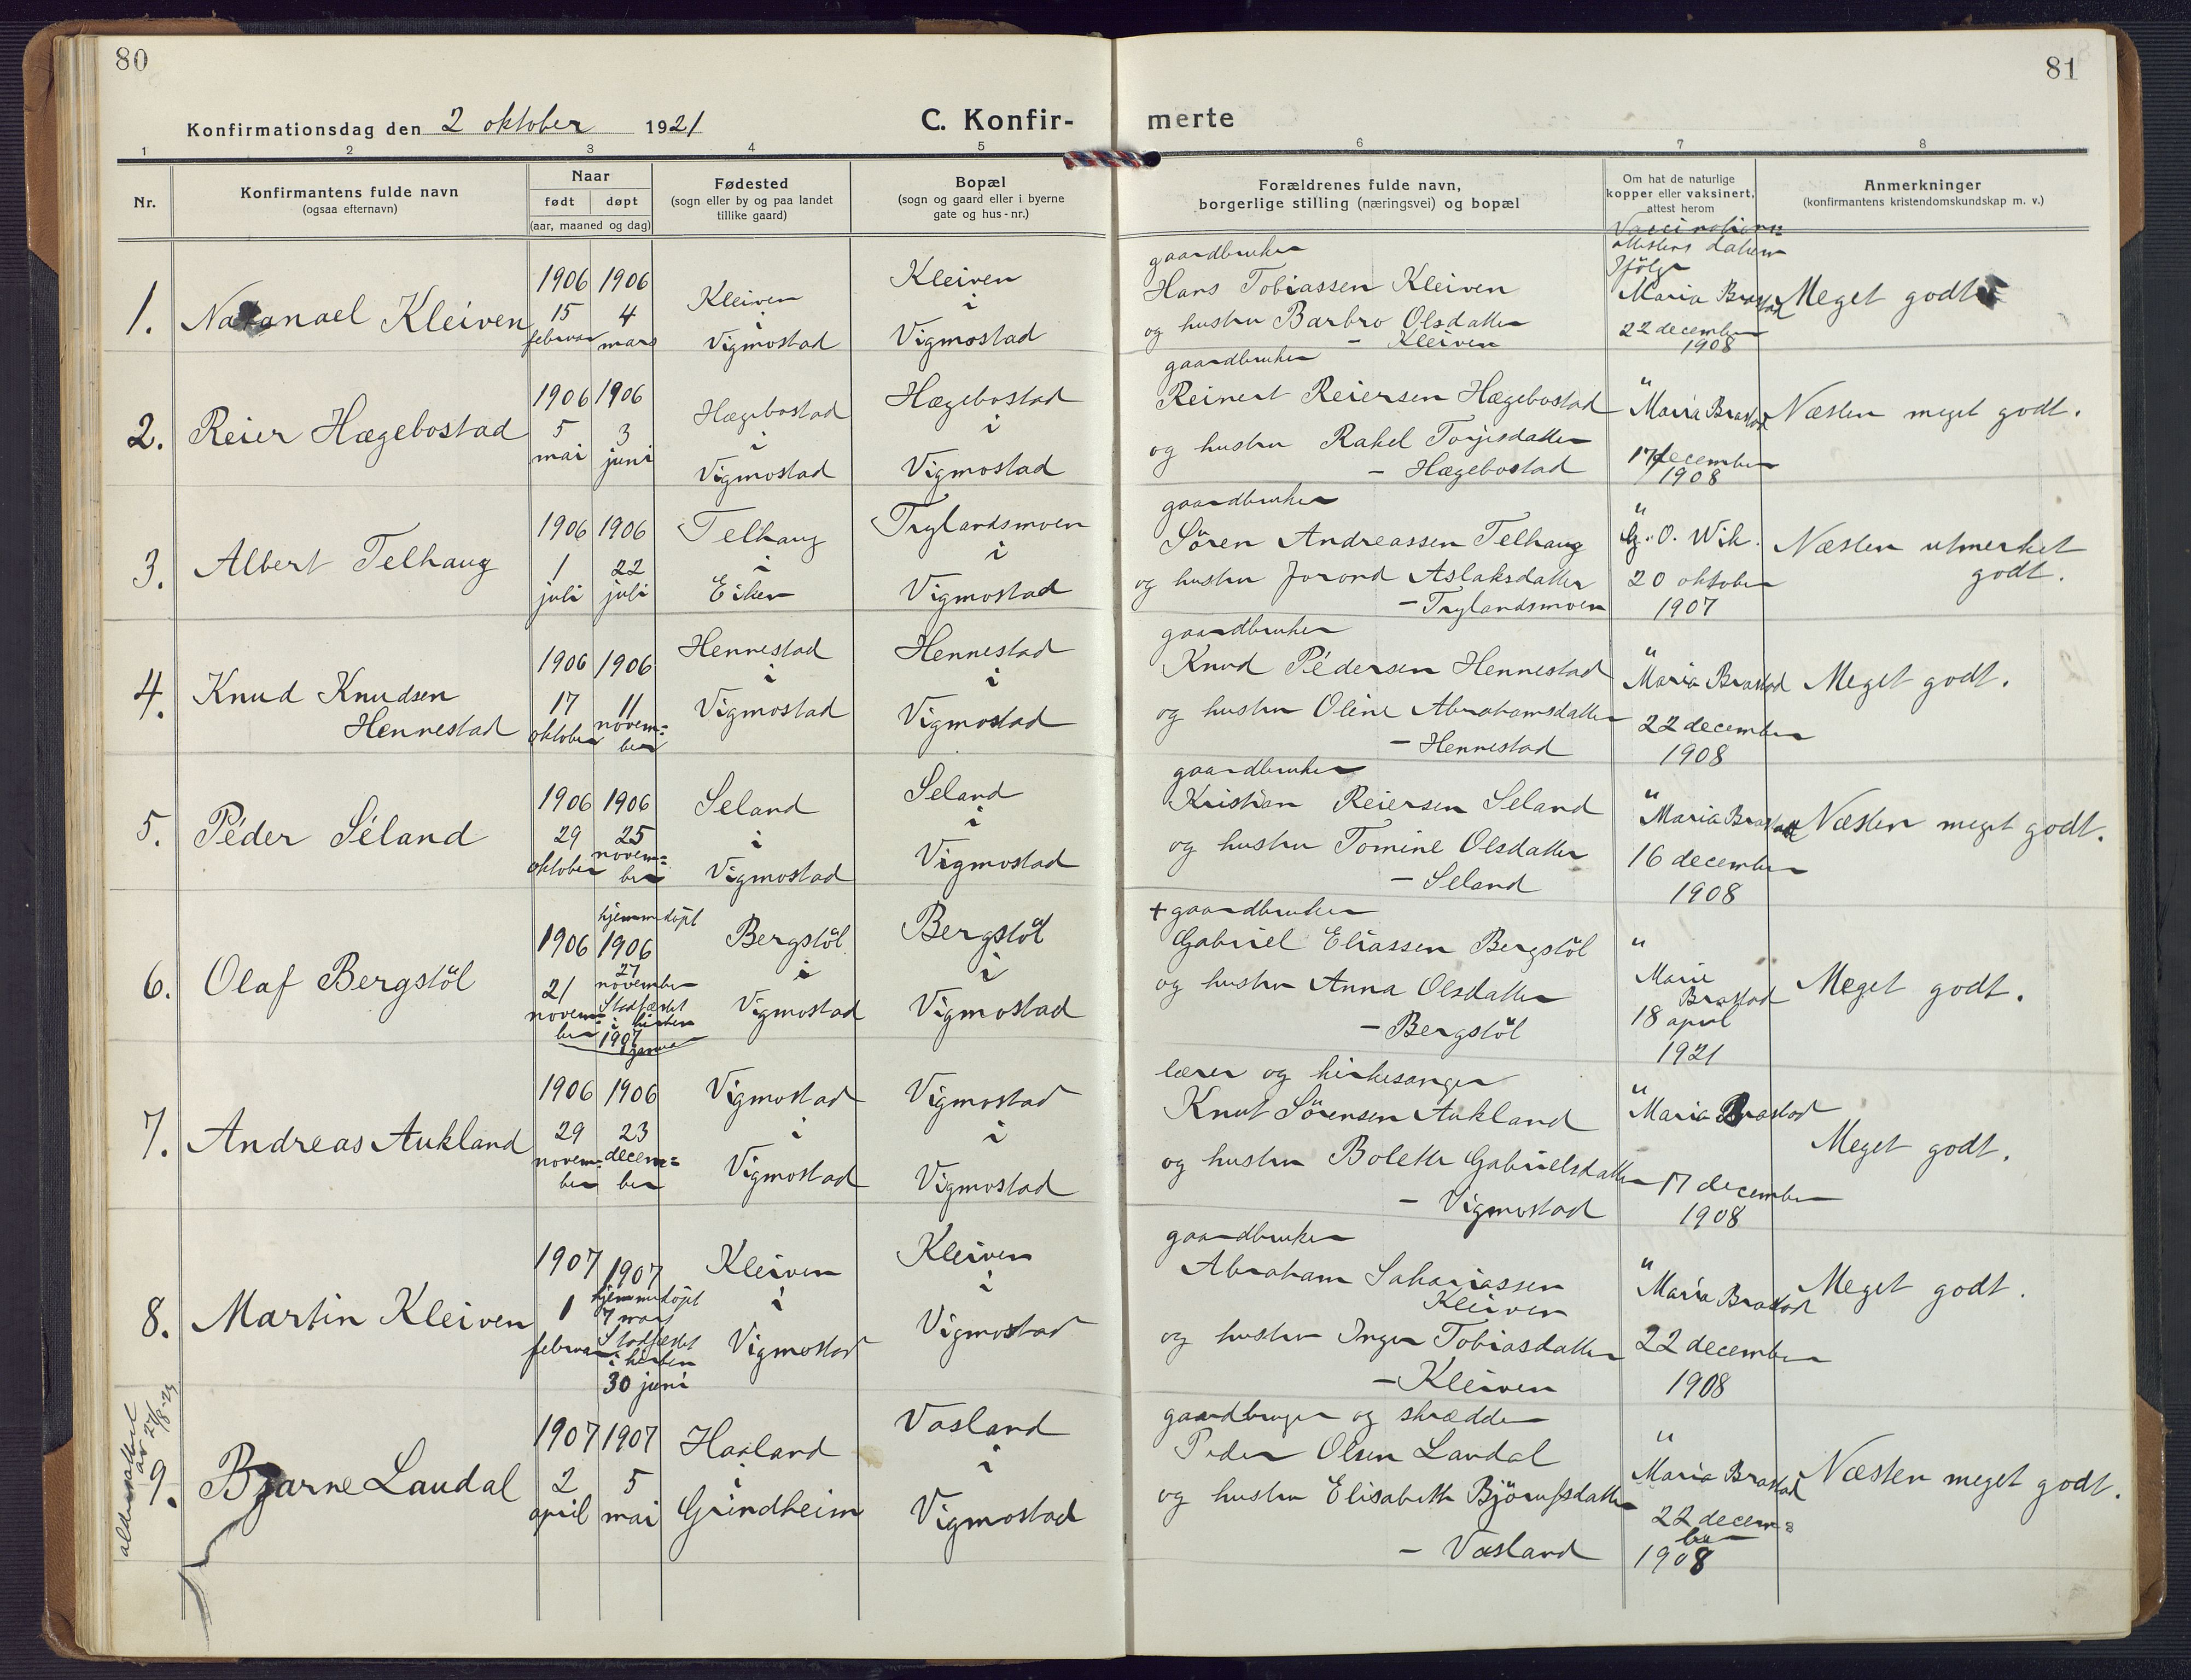 80
81
Konfirmationsdag den 2 oktober 1921
C. Konfir-
merte
1 2 3 4 5 6 7 8
Nr.
Konfirmantens fulde navn
(ogsaa efternavn)
Naar
født døpt
(aar, maaned og dag)
Fødested
(sogn eller by og paa landet
tillike gaard)
Bopæl
(sogn og gaard eller i byerne
gate og hus-nr.)
Forældrenes fulde navn,
borgerlige stilling (næringsvei) og bopæl
Om hat de naturlige
kopper eller vaksinert,
attest herom
Anmerkninger
(konfirmantens kristendomskundskap m. v.)
1.
Natanael Kleiven
1906
15
februar
1906
4
mars
Kleiven
i
Vigmostad
Kleiven
i
Vigmostad
gaardbruker
Hans Tobiassen Kleiven
og hustru Barbro Olsdatter
- Kleiven
Vaccinations=
attestens datum
Ifölge
Maria Brastad
22 december
1908
Meget godt
2.
Reier Hægebostad
1906
5
mai
1906
3
juni
Hægebostad
i
Vigmostad
Hægebostad
i
Vigmostad
gaardbruker
Reinert Reiersen Hægebostad
og hustru Rakel Torjesdatter
- Hægebostad
"
Maria Brastad
17 december
1908
Næsten meget godt.
3.
Albert Telhaug
1906
1
juli
1906
22
juli
Telhaug
i
Eiken
Trylandsmoen
i
Vigmostad
gaardbruker
Sören Andreassen Telhaug
og hustru Jorond Aslaksdatter
- Trylandsmoen
"
O. Wik.
20 oktober
1907
Næsten utmerket
godt.
4.
Knud Knudsen
Hennestad
1906
17
oktober
1906
11
novem=
ber
Hennestad
i
Vigmostad
Hennestad
i
Vigmostad
gaardbruker
Knud Pedersen Hennestad
og hustru Oline Abrahamsdatter
- Hennestad
"
Maria Brastad
22 december
1908
Meget godt.
5.
Péder Séland
1906
29
oktober
1906
25
novem=
ber
Seland
i
Vigmostad
Seland
i
Vigmostad
gaardbruker
Kristian Reiersen Seland
og hustru Tomine Olsdatter
- Seland
"
Maria Brastad
16 december
1908
Næsten meget godt.
6.
Olaf Bergstöl
1906
21
novem=
ber
hjemmedöpt
1906
27
november
Stadfæstet
i kirken
1907
januar
Bergstöl
i
Vigmostad
Bergstöl
i
Vigmostad
+ gaardbruker
Gabriel Eliassen Bergstöl
og hustru Anna Olsdatter
- Bergstöl
"
Marie
Brastad
18 april
1921
Meget godt.
7.
Andreas Aukland
1906
29
novem=
ber
1906
23
decem=
ber
Vigmostad
i
Vigmostad
Vigmostad
i
Vigmostad
lærer og kirkesanger
Knut Sörensen Aukland
og hustru Bolette Gabrielsdatter
- Vigmostad
"
Maria Brastad
17 december
1908
Meget godt.
8.
Martin Kleiven
1907
1
februar
1907
hjemmedöpt
7 mars
Stadfæstet
i kirken
30 juni
Kleiven
i
Vigmostad
Kleiven
i
Vigmostad
gaardbruker
Abraham Sakariassen
Kleiven
og hustru Inger Tobiasdatter
- Kleiven
"
Maria Brastad
22 december
1908
Meget godt.
aldersattest
av 27/8-23
9.
Bjarne Laudal
1907
2
april
1907
5
mai
Haaland
i
Grindheim
Vasland
i
Vigmostad
gaardbruger og skrædder
Peder Olsen Laudal
og hustru Elisabeth
- Vasland
"
Maria Brastad
22 decem=
ber
1908
Næsten meget godt.